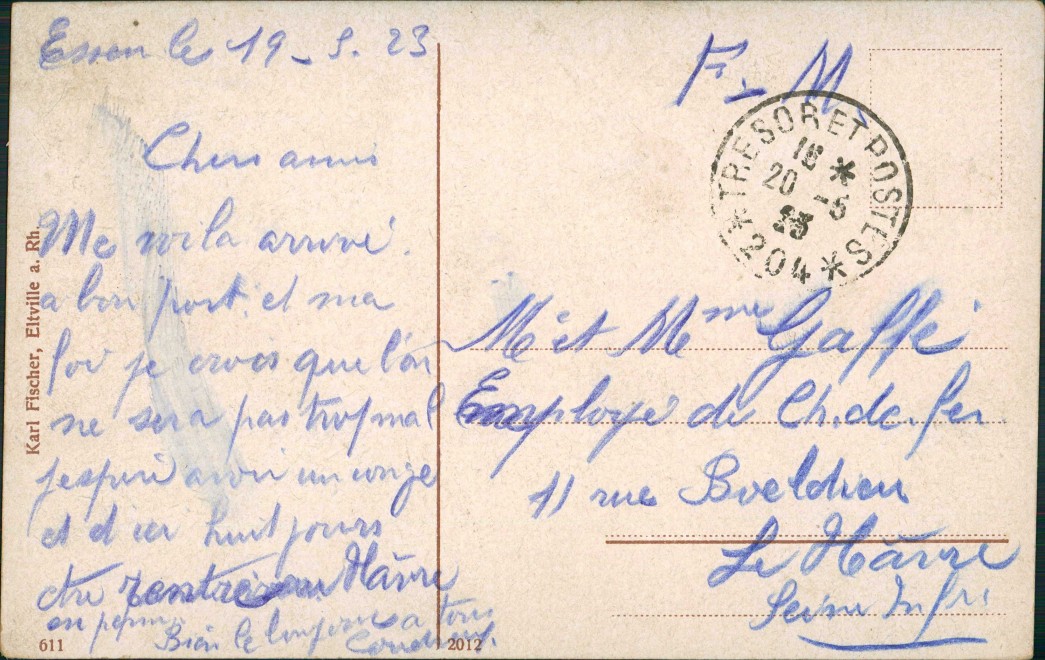 Essen le 19-5.23
Chers amis
Me voila arrivé.
a bon port. et ma
foi je crois que l'on
ne sera pas trop mal
j'espere avoir un conge
et d'ici huit jours
etre rentré au Hâvre
en perm.
Bien le bonjour a tous
F. M.
TRESOR ET POSTES
* 204 *
16 *
20 -5
23
M. et Mme Gaffé
Employé de Ch. de. fer
11 rue Boeldieu
Le Hâvre
Seine Infre
Karl Fischer, Eltville a. Rh.
611
2012